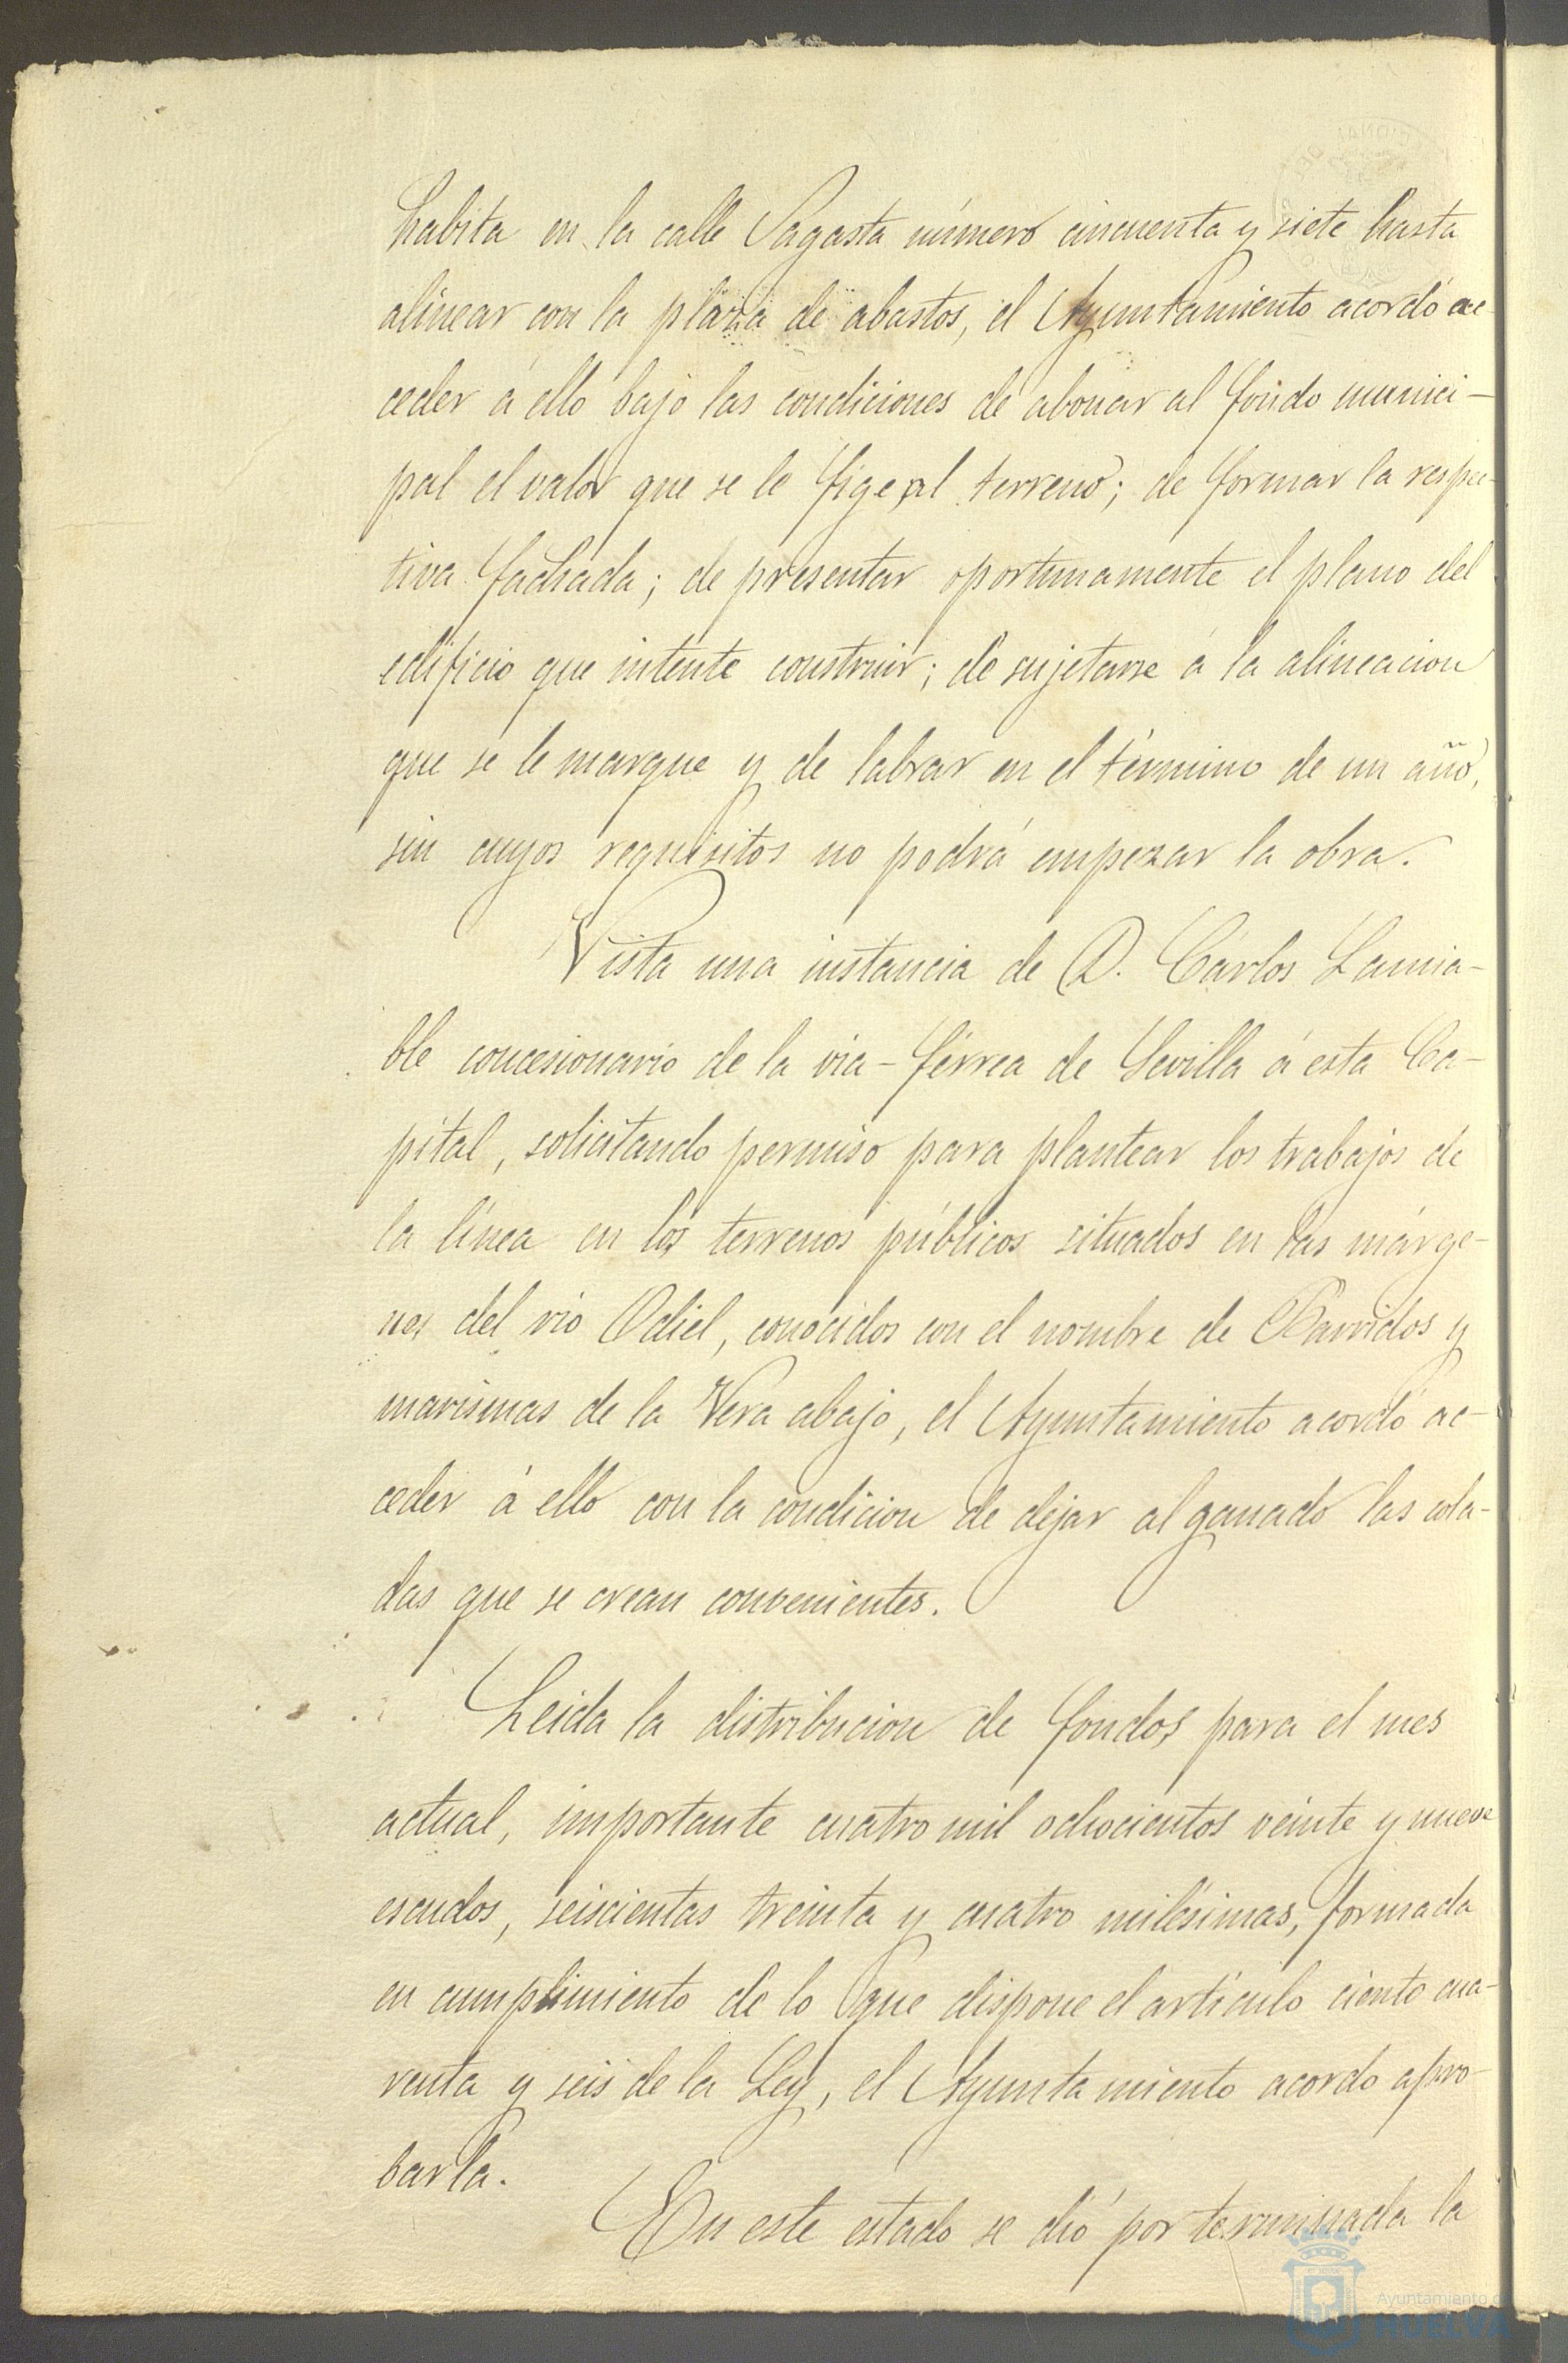 habita en la calle Sagasta número cincuenta y siete hasta
alinear con la plaza de abastos, el Ayuntamiento acordó ac-
ceder á ello bajo las condiciones de abonar al fondo munici-
pal el valor que se le fige al terreno; de formar la respec-
tiva fachada; de presentar oportunamente el plano del
edificio que intente construir; de sujetarse á la alineacion
que se le marque y de labrar en el término de un año,
sin cuyos requisitos no podrá empezar la obra.
Vista una instancia de D. Cárlos Lamia-
ble concesionario de la via-férrea de Sevilla á esta Ca-
pital, solicitando permiso para plantear los trabajos de
la línea en los terrenos públicos situados en las márge-
nes del rio Odiel, conocidos con el nombre de Barridos y
marismas de la Vera abajo, el Ayuntamiento acordó ac-
ceder á ello con la condicion de dejar al ganado las cola-
das que se crean convenientes.
Leida la distribucion de fondos para el mes
actual, importante cuatro mil ochocientos veinte y nueve
escudos, seiscientas treinta y cuatro milésimas, formada
en cumplimiento de lo que dispone el artículo ciento cua-
renta y seis de la Ley, el Ayuntamiento acordo apro-
barla.
En este estado se dió por terminada la
Ayuntamiento de
HUELVA